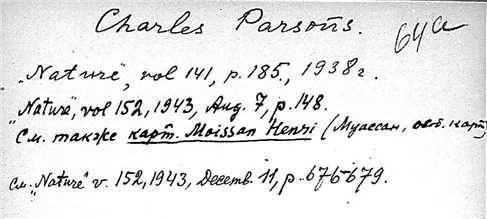 Charles Parsons.
64a
„Nature", vol 141, p. 185., 1938г.
„Nature", vol 152, 1943, Aug. 7, p. 148.
См. также карт. Moissan Henri (Муассан, особ. карт)
См. „Nature" v. 152, 1943, Decemb. 11, p. 676-679.